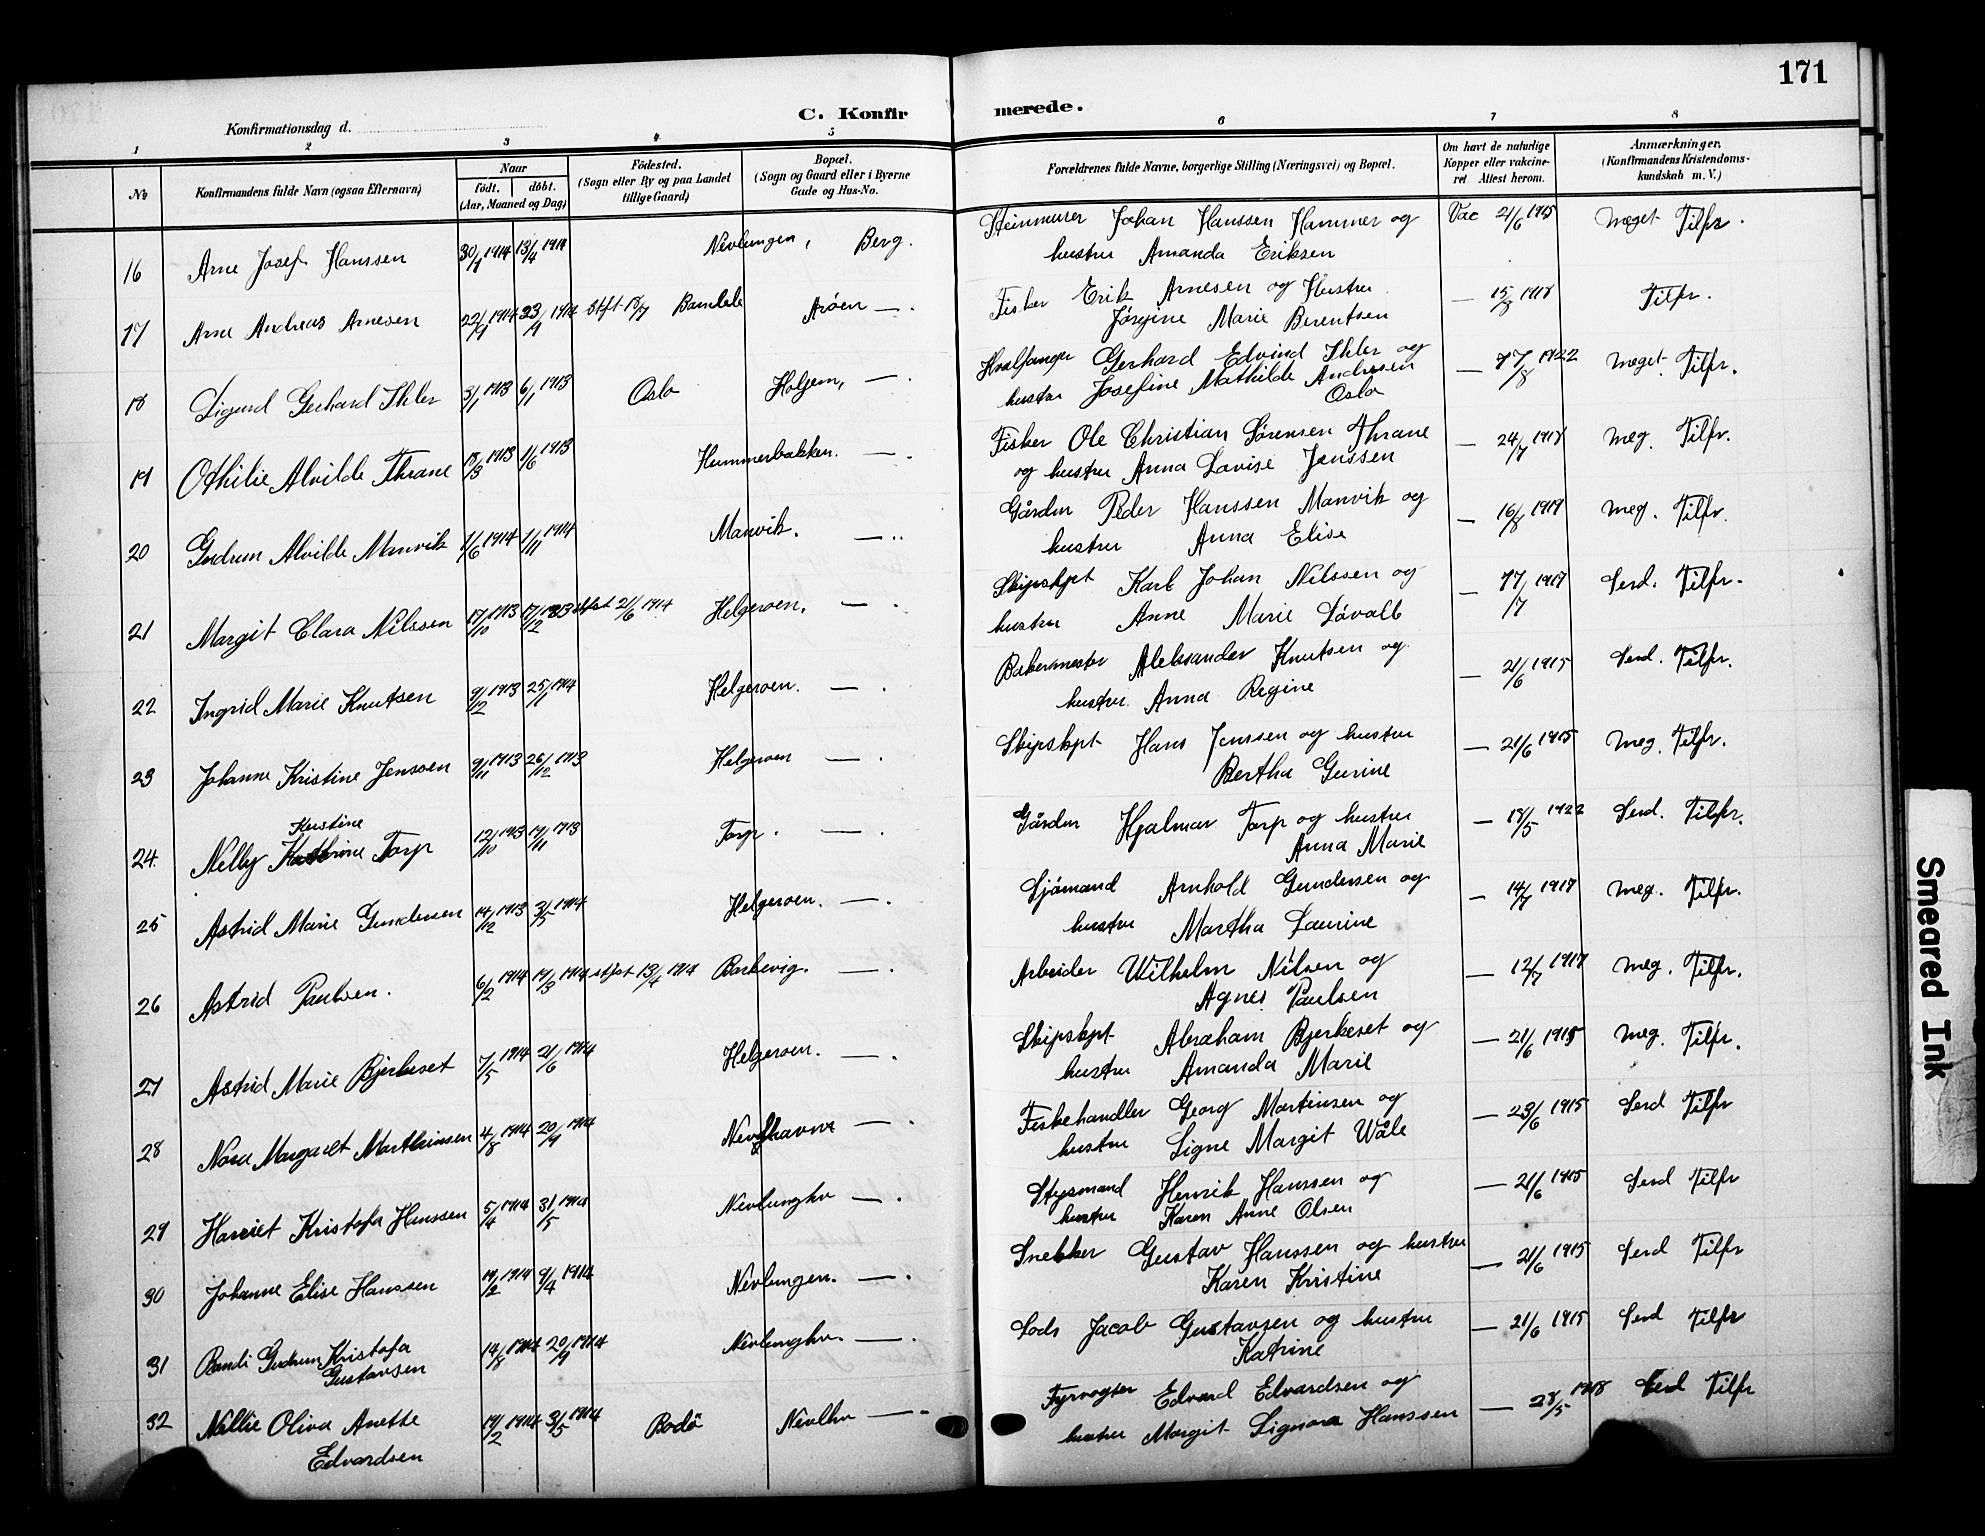 171
C. Konfirmerede.
Konfirmationsdag d.
1 2 3 4 5 6 7 8
No.
Konfirmandens fulde Navn (ogsaa Efternavn)
Naar
födt. döbt.
(Aar, Maaned og Dag)
Födested.
(Sogn eller By og paa Landet
tillige Gaard)
Bopæl.
(Sogn og Gaard eller i Byerne
Gade og Hus-No.
Forældrenes fulde Navne, borgerlige Stilling (Næringsvei) og Bopæl.
Om havt de naturlige
Kopper eller vakcine-
ret Attest herom.
Anmærkninger.
(Konfirmandens Kristendoms-
kundskab m. V.)
16 Arne Josef Hanssen 13/4 1914 Nevlungen, Berg. Steinmurer Johan Hanssen Hammer og Vac 21/6 1915 Meget Tilfr.
hustru Amanda Eriksen
17 Arne Andreas Arnesen Bamble Aröen —. Fisker Erik Arnesen og Hustru — 15/8 1918 Tilfr.
Jörgine Marie Berentsen
18 Sigurd Gerhard Ihler 3/1 1913 6/1 1913 Oslo Holjem, —. Hvalfanger Gerhard Edvind Ihler og Meget Tilfr.
hustru Josefine Mathilde Andresen
Oslo
19 Othilie Alvilde Thrane 1/6 1913 Hummerbakken. —. Fisker Ole Christian Sörensen Thrane — 24/7 1918 Meg. Tilfr.
og hustru Anna Lovise Janssen
20 Gudrun Alvilde Manvik 1/6 1914 1/11 1914 Manvik. —. Gårdbr Peder Hanssen Manvik og — 16/8 1919 Meg. Tilfr.
hustru Anna Elise
21 Margit Clara Nilssen 17/10 1913 stfst 21/6 1914 Helgeroen. —. Skipskpt Karl Johan Nilssen og — 17/7 1917 Serd. Tilfr.
hustru Anne Marie Lövall
22 Ingrid Marie Knutsen 9/12 1913 25/1 1914 Helgeroen. —. Bakermester Aleksander Knutsen og — 21/6 1915 Serd. Tilfr.
hustru Anna Regine
23 Johanne Kristine Jenssen 9/11 1913 26/12 1913 Helgeroen —. Skipskpt Hans Jenssen og hustru — 21/6 1915 Meg. Tilfr.
Bertha Gurine
Kristine
24. Nelly Torp 12/10 1913 Torp. —. Gårdbr Hjalmar Torp og hustru — 18/5 1922 Serd. Tilfr.
Anna Marie
25 Astrid Marie Gundersen 14/12 1913 3/5 1914 Helgeroen. —. Sjömand Arnhold Gundersen og — 14/7 1917 Meg. Tilfr.
hustru Martha Laurine
26 Astrid Paulsen. 6/2 1914 stfst 13/4 1914 Barkevig. —. Arbeider Wilhelm Nilsen og — 12/7 1917 Meg. Tilfr.
Agnes Paulsen
27 Astrid Marie Bjerkeset 7/5 1914 21/6 1914 Helgeroen. —. Skipskpt Abraham Bjerkeset og — 21/6 1915 Meg. Tilfr.
hustru Amanda Marie
28 Nora Margaret Marthinsen 4/8 1914 20/9 1914 —. Fiskehandler Georg Martinsen og — 23/6 1915 Serd Tilfr
hustru Signe Margit Wåle
29 Harriet Kristofa Hanssen 5/4 1914 31/5 1914 Nevlunghv —. Styrmand Henrik Hanssen og — 21/6 1915 Serd Tilfr
hustru Karen Anne Olsen
30 Johanne Elise Hanssen 9/4 1914 Nevlungen. —. Snekker Gustav Hanssen og hustru — 21/6 1915 Serd Tilfr
Karen Kristine
31 Randi Gudrun Kristofa 14/8 1914 20/9 1914 Nevlunghv. —. Lods Jacob Gustavsen og hustru — 21/6 1915 Serd Tilfr
Gustavsen Katrine
32 Nellie Oliva Anette 3/5 1914 Bodö Nevlhv —. Fyrvogter Edvard Edvardsen og — 28/5 1918 Serd Tilfr
Edvardsen hustru Margit Signora Hanssen
Smeared Ink